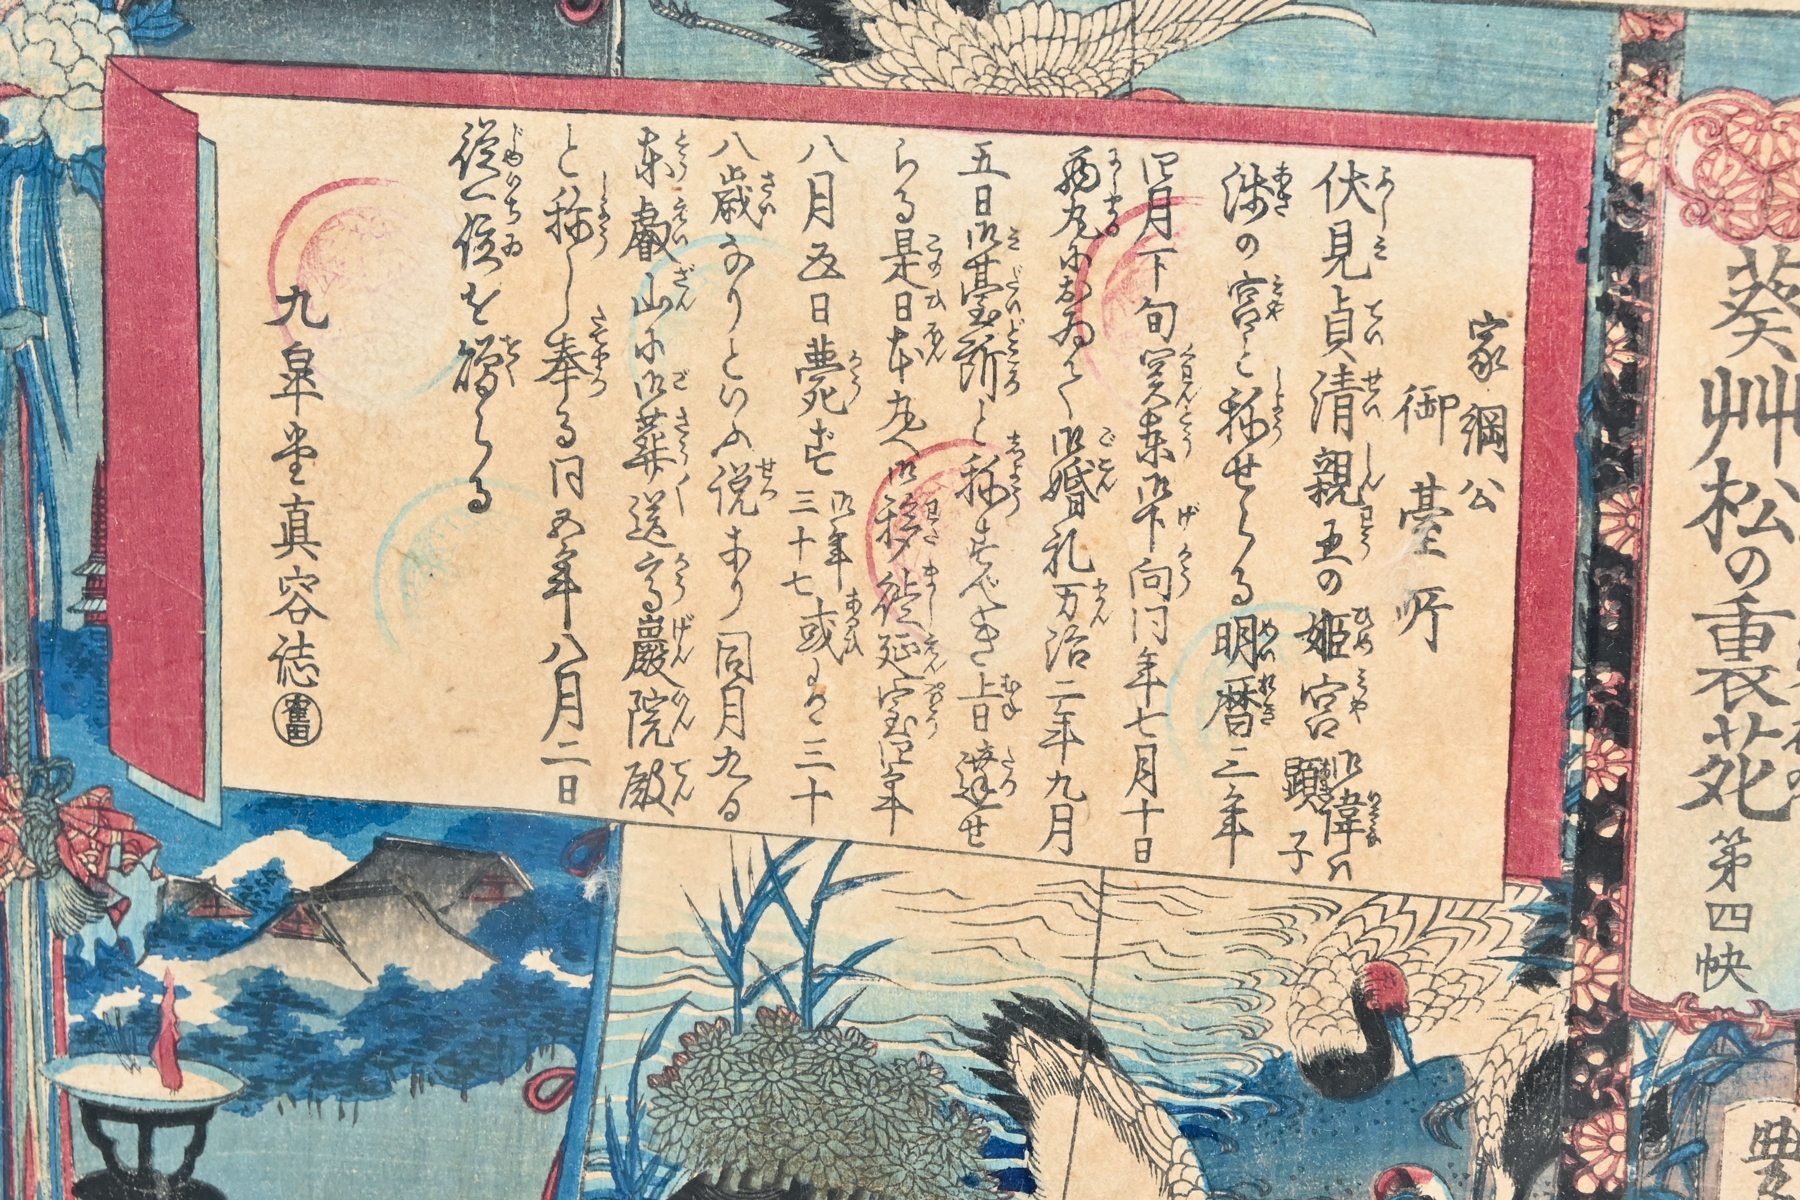 葵艸松の裏苑
第四帙
豊
家綱公
御臺所
伏見貞清親王の姫宮御諱ハ顕子
浅の宮と称せらる明暦三年
四月下旬関東御下向同年七月十日
西丸におゐて御婚礼万治二年九月
五日御臺所と称すべき上旨達せ
らる是日本丸へ御移徙延宝四年
八月五日薨ず御年三十七或ハ三十
八歳なりといふ説あり同月九日
東叡山に御葬送高巌院殿
と称し奉る同五年八月二日
従一位を贈らる
九皐堂真容誌